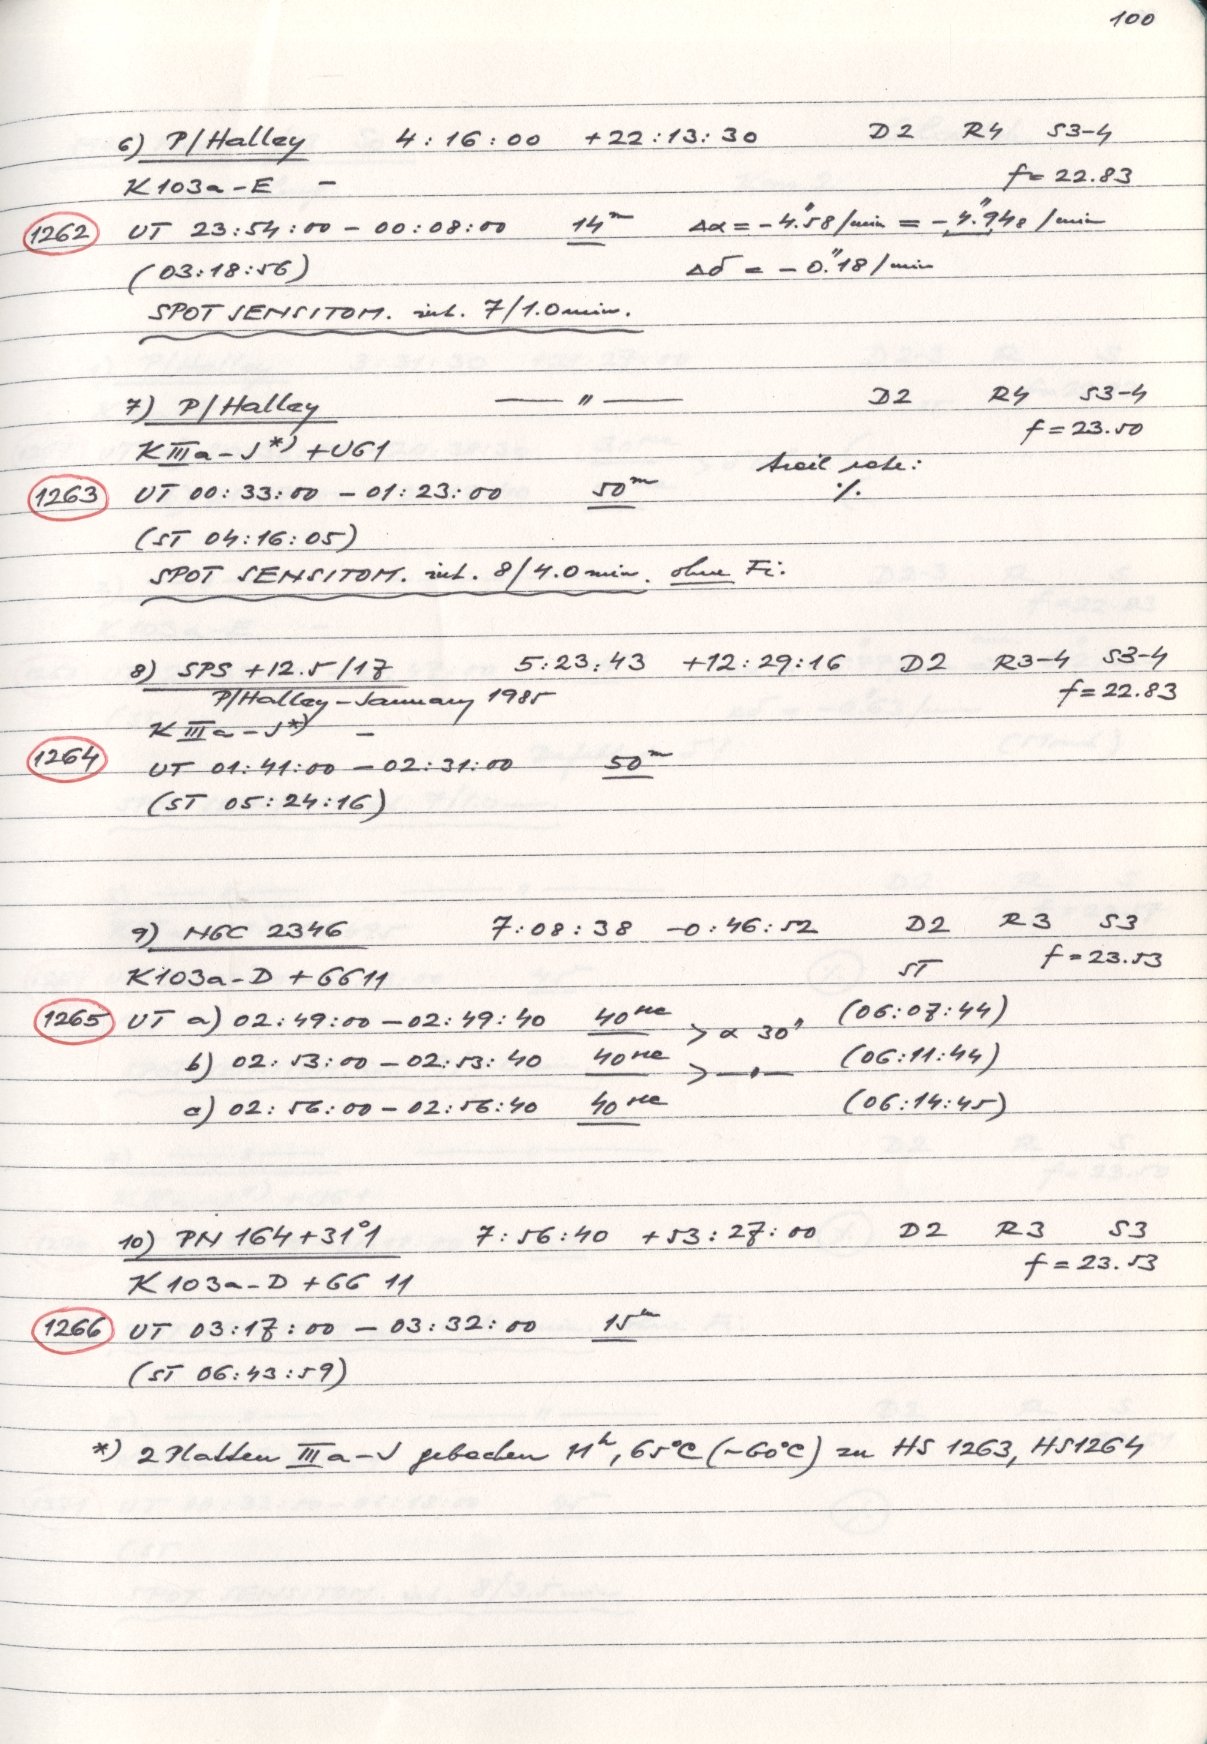 100
6) P/Halley 4:16:00 +22:13:30 D2 R4 S3-4
K 103a-E – f = 22.83
1262 UT 23:54:00 – 00:08:00 14m Δα = -4."58/min = -4."948/min
(03:18:56) Δδ = -0."18/min
SPOT SENSITOM. int. 7/1.0 min.
7) P/Halley — " — D2 R4 S3-4
K IIIa-J*) + UG1 f = 23.50
trail rate:
1263 UT 00:33:00 – 01:23:00 50m ./.
(ST 04:16:05)
SPOT SENSITOM. int. 8/4.0 min. ohne Fi:
8) SPS +12.5/17 5:23:43 +12:29:16 D2 R3-4 S3-4
P/Halley – January 1985 f = 22.83
K IIIa-J*) –
1264 UT 01:41:00 – 02:31:00 50m
(ST 05:24:16)
9) NGC 2346 7:08:38 -0:46:52 D2 R3 S3
K 103a-D + GG11 ST f = 23.53
1265 UT a) 02:49:00 – 02:49:40 40sec > α 30" (06:07:44)
b) 02:53:00 – 02:53:40 40sec > — " — (06:11:44)
c) 02:56:00 – 02:56:40 40sec (06:14:45)
10) PN 164+31°1 7:56:40 +53:27:00 D2 R3 S3
K 103a-D + GG 11 f = 23.53
1266 UT 03:17:00 – 03:32:00 15m
(ST 06:43:59)
*) 2 Platten IIIa-J gebacken 11h, 65°C (~60°C) zu HS 1263, HS1264